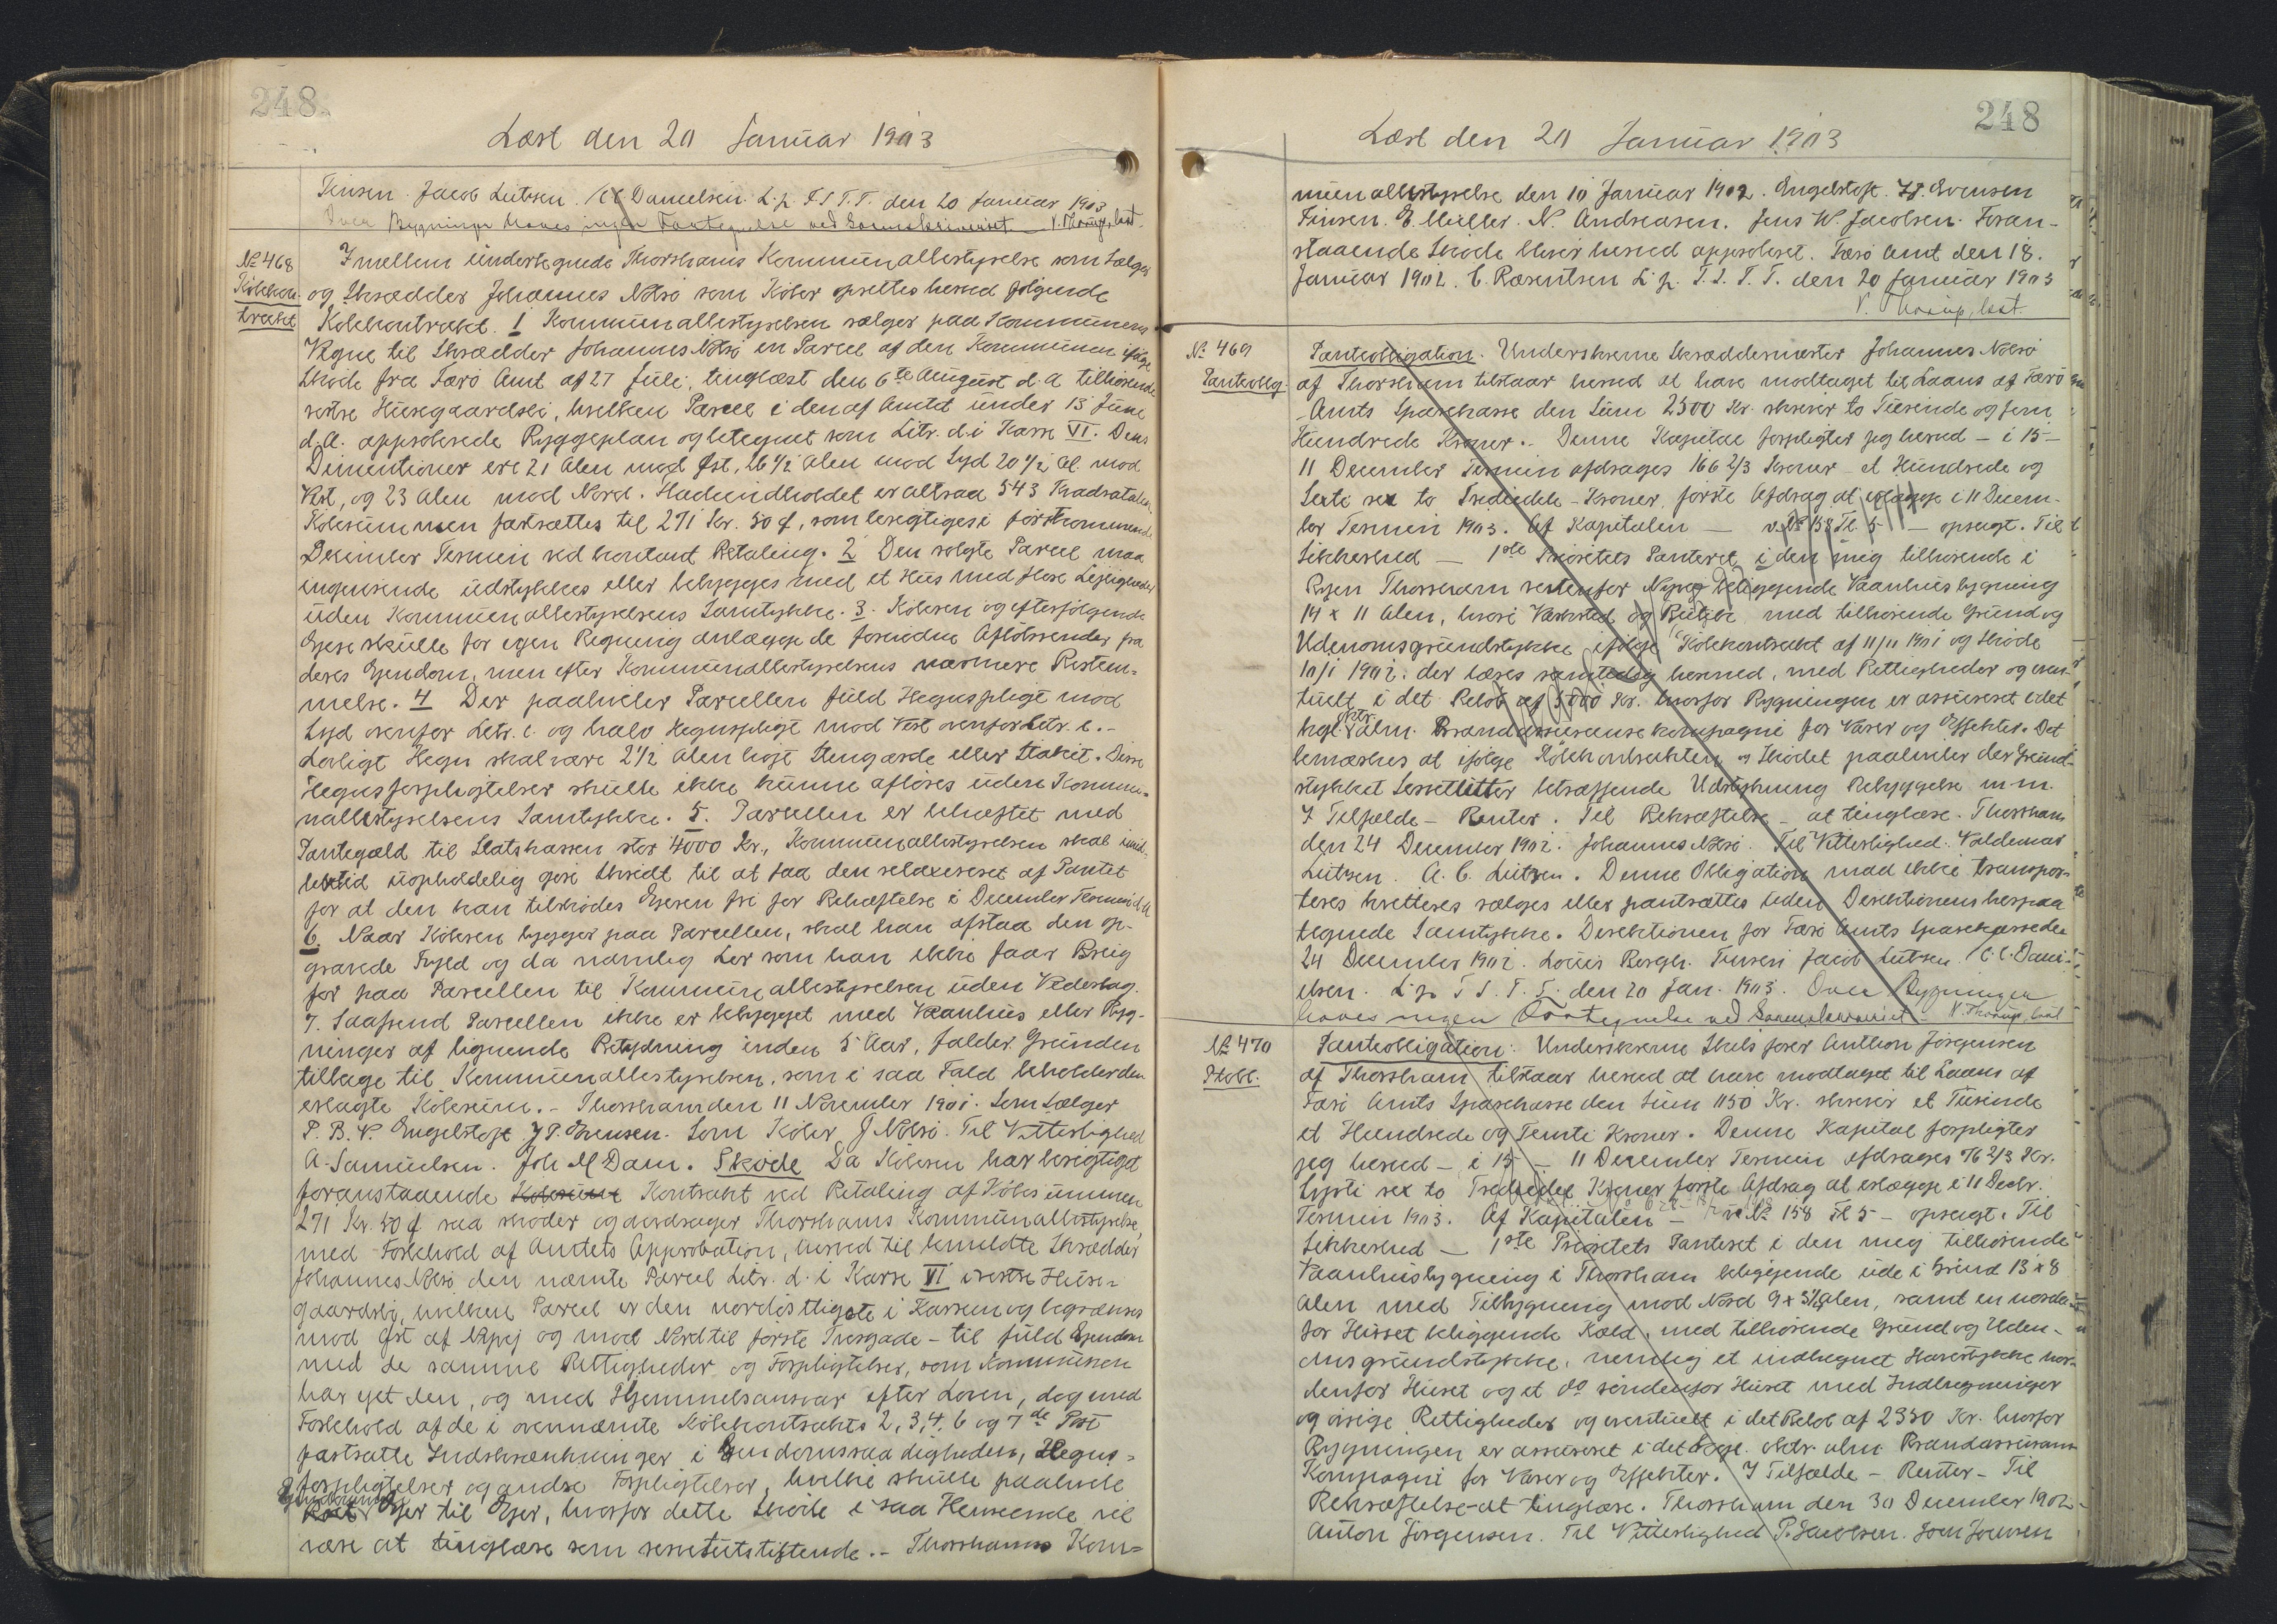 248
Læst den 20 Januar 1903
Finsen. Jacob Lützen. /C.C. Danielsen. L. p. F. S. T. T. den 20 Januar 1903
Over Bygningen haves ingen Fortegnelse ved Sorenskriveriet V. Thorup, const.
No 468
Købekon-
trakt
Imellem undertegnede Thorshavns Kommunalbestyrelse som Sælger
og Skrædder Johannes Nolsø som Køber oprettes herved følgende
Købekontrakt. 1 Kommunalbestyrelsen sælger paa Kommunens
Vegne til Skrædder Johannes Nolsø en Parcel af den Kommunen ifølge
Skøde fra Færø Amt af 27 Juli, tinglæst den 6te August d.A. tilhørende
vestre Husegaardsbø, hvilken Parcel i den af Amtet under 13 Juni
d.A. approberede Byggeplan og betegnet som Litr. d. i Karre VI. Dens
Dimentioner ere 21 Alen mod Øst, 26 1/2 Alen mod Syd 20 1/2 Al. mod
Vest, og 23 Alen mod Nord. Fladeindholdet er altsaa 543 Kvadratalen.
Købesummen fastsættes til 271 Kr. 50 Ø, som berigtiges i førstkommende
December Termin ved kontant Betaling. 2 Den solgte Parcel maa
ingensinde udstykkes eller bebygges med et Hus med flere Lejligheder
uden Kommunalbestyrelsens Samtykke. 3. Køberen og efterfølgende
Ejere skulle for egen Regning anlægge de fornødne Afløbsrender fra
deres Ejendom, men efter Kommunalbestyrelsens nærmere Bestem-
melse. 4 Der paahviler Parcellen fuld Hegnspligt mod
Syd ovenfor Litr. c. og halv Hegnspligt mod Vest ovenfor Litr. e. -
Lovligt Hegn skal være 2 1/2 Alen højt Stengærde eller Stakit. Disse
Hegnsforpligtelser skulle ikke kunne afløses uden Kommu-
nalbestyrelsens Samtykke. 5. Parcellen er behæftet med
Pantegæld til Statskassen stor 4000 Kr., Kommunalbestyrelsen skal imid-
lertid uopholdelig gøre Skridt til at faa den relaxeret af Pantet
for at den kan tilskødes Ejeren fri for Behæftelse i December Termin d.A.
6. Naar Køberen bygger paa Parcellen, skal han afstaa den op-
gravede Fyld og da nemlig Ler som han ikke faar Brug
for paa Parcellen til Kommunalbestyrelsen uden Vederlag.
7. Saafremt Parcellen ikke er bebygget med Vaanhus eller Byg-
ninger af lignende Betydning inden 5 Aar, falder Grunden
tilbage til Kommunalbestyrelsen, som i saa Fald beholder den
erlagte Købesum. - Thorshavn den 11 November 1901. Som Sælger
P. B. V. Engelstoft J P. Evensen. Som Køber J Nolsø. Til Vitterlighed
A. Samuelsen. Joh M Dam. Skøde Da Køberen har berigtiget
foranstaaende Købesum Kontrakt ved Betaling af Købesummen
271 Kr. 50 Ø saa skøder og overdrager Thorshavns Kommunalbestyrelse,
med Forbehold af Amtets Approbation, herved til bemeldte Skrædder
Johannes Nolsø den nævnte Parcel Litr. d. i Karre VI i vestre Huse-
gaardsbø, hvilken Parcel er den nordøstligste i Karreen og begrænses
mod Øst af Nyvej og mod Nord til første Tværgade - til fuld Ejendom
med de samme Rettigheder og Forpligtelser, som Kommunen
har ejet den, og med Hjemmelsansvar efter Loven, dog med
Forbehold af de i ovennævnte Købekontrakts 2, 3, 4, 6 og 7de Post
fastsatte Indskrænkninger i Ejendomsraadigheden, Hegns-
forpligtelser og andre Forpligtelser, hvilke skulle paahvile
Ejendommen
fra Ejer til Ejer, hvorfor dette Skøde i saa Henseende vil
være at tinglæse som servitutstiftende. - Thorshavns Kom-
248
Læst den 20 Januar 1903
munalbestyrelse den 10 Januar 1902. Engelstoft. J.P. Evensen
Finsen. E. Müller. N. Andreasen. Jens W. Jacobsen. Foran-
staaende Skøde bliver herved approberet. Færø Amt den 18.
Januar 1902. C. Bærentsen L. p. F. S. T. T. den 20 Januar 1903
V. Thorup, const.
No 469
Panteoblig.
Panteobligation. Underskrevne Skræddermester Johannes Nolsø
af Thorshavn tilstaar herved at have modtaget til Laans af Færø
Amts Sparekasse den Sum 2500 Kr. skriver to Tusinde og fem
Hundrede Kroner. - Denne Kapital forpligter jeg herved - i 15 -
11 December Termin afdrages 166 2/3 Kroner - et Hundrede og
Seksti sex to Trediedele - Kroner, første Afdrag at erlægge i 11 Decem-
ber Termin 1903. Af Kapitalen - v. No 158 Fl. 5 - opsagt. Til
Sikkerhed - 1ste Prioritets Panteret i den mig tilhørende i
Byen Thorshavn vestenfor Nyvej beliggende Vaanhusbygning
14 x 11 Alen, hvori Værksted og Butik med tilhørende Grund og
Udenomsgrundstykke ifølge Købekontrakt af 11/11 1901 og Skøde
10/1 1902, der læses samtidig hermed, med Rettigheder og even-
tuelt i det Beløb af 5000 Kr. hvorfor Bygningen er assureret i det
kgl. oktr. alm. Brandassurance kompagni for Varer og Effekter. Det
bemærkes at ifølge Købekontrakten og Skødet paahviler der Grund-
stykket Servitutter betræffende Udstykning Bebyggelse m.m.
I Tilfælde - Renter. Til Bekræftelse - at tinglæse. Thorshavn
den 24 December 1902. Johannes Nolsø. Til Vitterlighed: Valdemar
Lützen. A. C. Lützen. Denne Obligation maa ikke transpor-
teres kvitteres sælges eller pantsættes uden Direktionens herpaa
tegnede Samtykke. Direktionen for Færø Amts Sparekasse den
24 December 1902. Louis Bergh. Finsen Jacob Lützen. /C.C. Dani-
elsen. L. p. F. S. T. T. den 20 Jan. 1903. Over Bygningen
haves ingen Fortegnelse ved Sorenskriveriet - V. Thorup, const
No 470
Ptobl.
Panteobligation. Underskrevne Skibsfører Anthon Jørgensen
af Thorshavn tilstaar herved at have modtaget til Laans af
Færø Amts Sparekasse den Sum 1150 Kr. skriver et Tusinde
et Hundrede og Femti Kroner. Denne Kapital forpligter
jeg herved - i 15 - 11 December Termin afdrages 76 2/3 Kr.
Sytti sex to Trediedel Kroner første Afdrag at erlægge i 11 Decbr.
Termin 1903. Af Kapitalen - v. No 158 Fl 5 - opsagt. Til
Sikkerhed - 1ste Prioritets Panteret i den mig tilhørende
Vaanhusbygning i Thorshavn beliggende ude i Grind 13 x 8
Alen med Tilbygning mod Nord 9 x 3 1/2 Alen, samt en norden-
for Huset beliggende Kæld, med tilhørende Grund og Uden-
omsgrundstykke, nemlig et indhegnet Havestykke nor-
denfor Huset og et do søndenfor Huset med Indhegninger
og øvrige Rettigheder og eventuelt i det Beløb af 2350 Kr. hvorfor
Bygningen er assureret i det kgl. oktr. alm. Brandassurance
Kompagni for Varer og Effekter. I Tilfælde - Renter - Til
Bekræftelse - at tinglæse. Thorshavn den 30 December 1902
Anton Jørgensen. Til Vitterlighed P. Jacobsen.